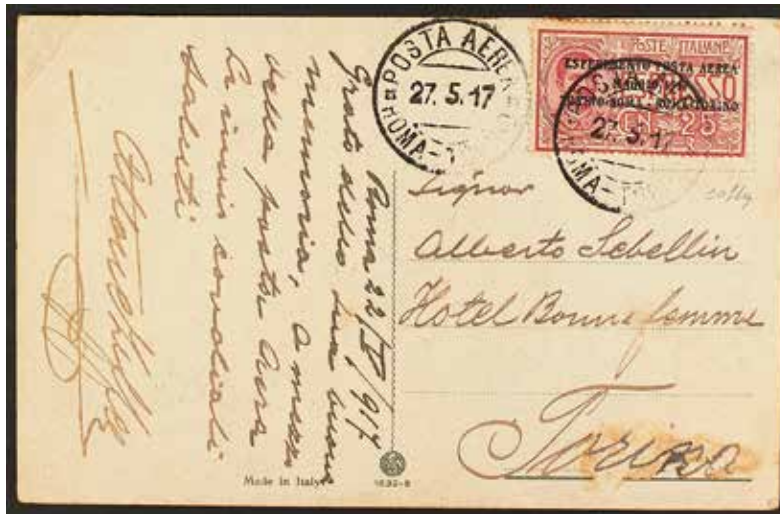 POSTA AEREA
27.5.17
ROMA-
POSTE ITALIANE
ESPERIMENTO POSTA AEREA
MAGGIO 1917
TORINO-ROMA · ROMA-TORINO
25
27.5.17
ROMA-
Signor
Alberto Sebellin
Hotel Bonne femme
Torino
Roma 22/V/917
Grato della sua buona
memoria, a mezzo
della posta aerea
Le invio cordiali
saluti
Made in Italy